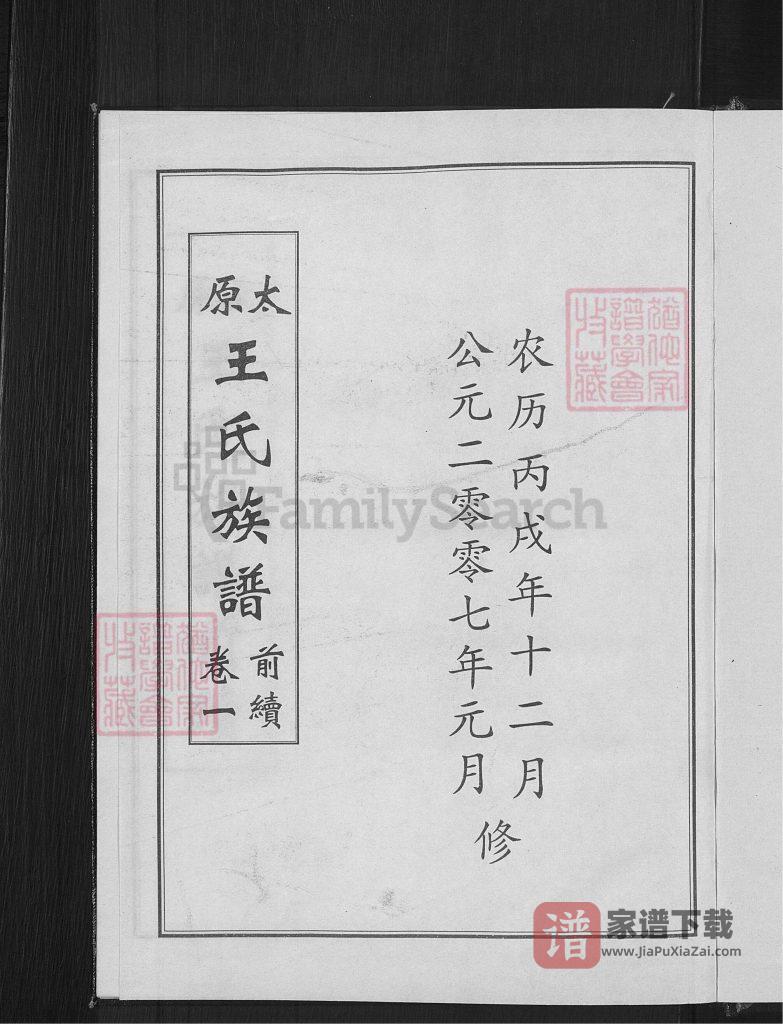 农历丙戌年十二月
公元二零零七年元月
修
太原
王氏族譜
前續
卷一
FamilySearch
谱
家谱下载
www.JiaPuXiaZai.com